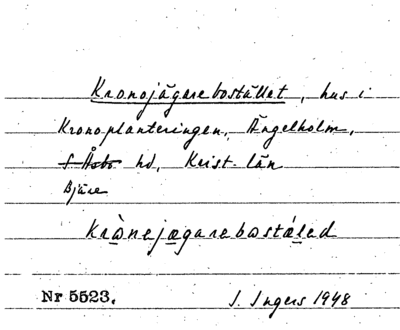 Kronojägarebostället, hus i
Kronoplanteringen, Ängelholm,
S. Åsbo hd, Krist. län
Bjäre
Krònejægarebostáled
Nr 5523. I. Ingers 1948